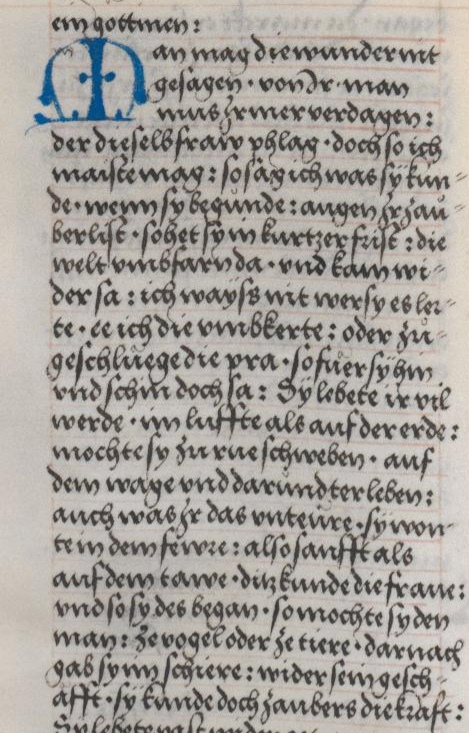 ein gottinen:
Man mag die wunder nit
gesagen · von Ir · man
mus Ir mer verdagen:
der dieselb fraw phlag · doch so ich
maiste mag: so sag ich was sy kun=
de · wenn sy begunde: augen Ir zau=
berlist · so het sy in kurtzer frist: die
welt vmbfarn da · vnd kam wi=
der sa: ich wayss nit wer sy es ler=
te · ee ich die vmbkerte: oder zů=
geschlůege die pra · so fůer sy hin
vnd schin doch sa: Sy lebete ir vil
werde · im luffte als auf der erde:
mochte sy zu rue schweben · auf
dem wage vnd darundter leben:
auch was Ir das vnteŵre · sy won=
te in dem feŵre: also sanfft als
auf dem tawe · ditz kunde die fraue:
vnd so sy des began · so mochte sy den
man: ze vogel oder ze tiere · darnach
gab sy im schiere: wider sein gesch=
afft · sy kunde doch zaubers die kraft:
Sy lebete